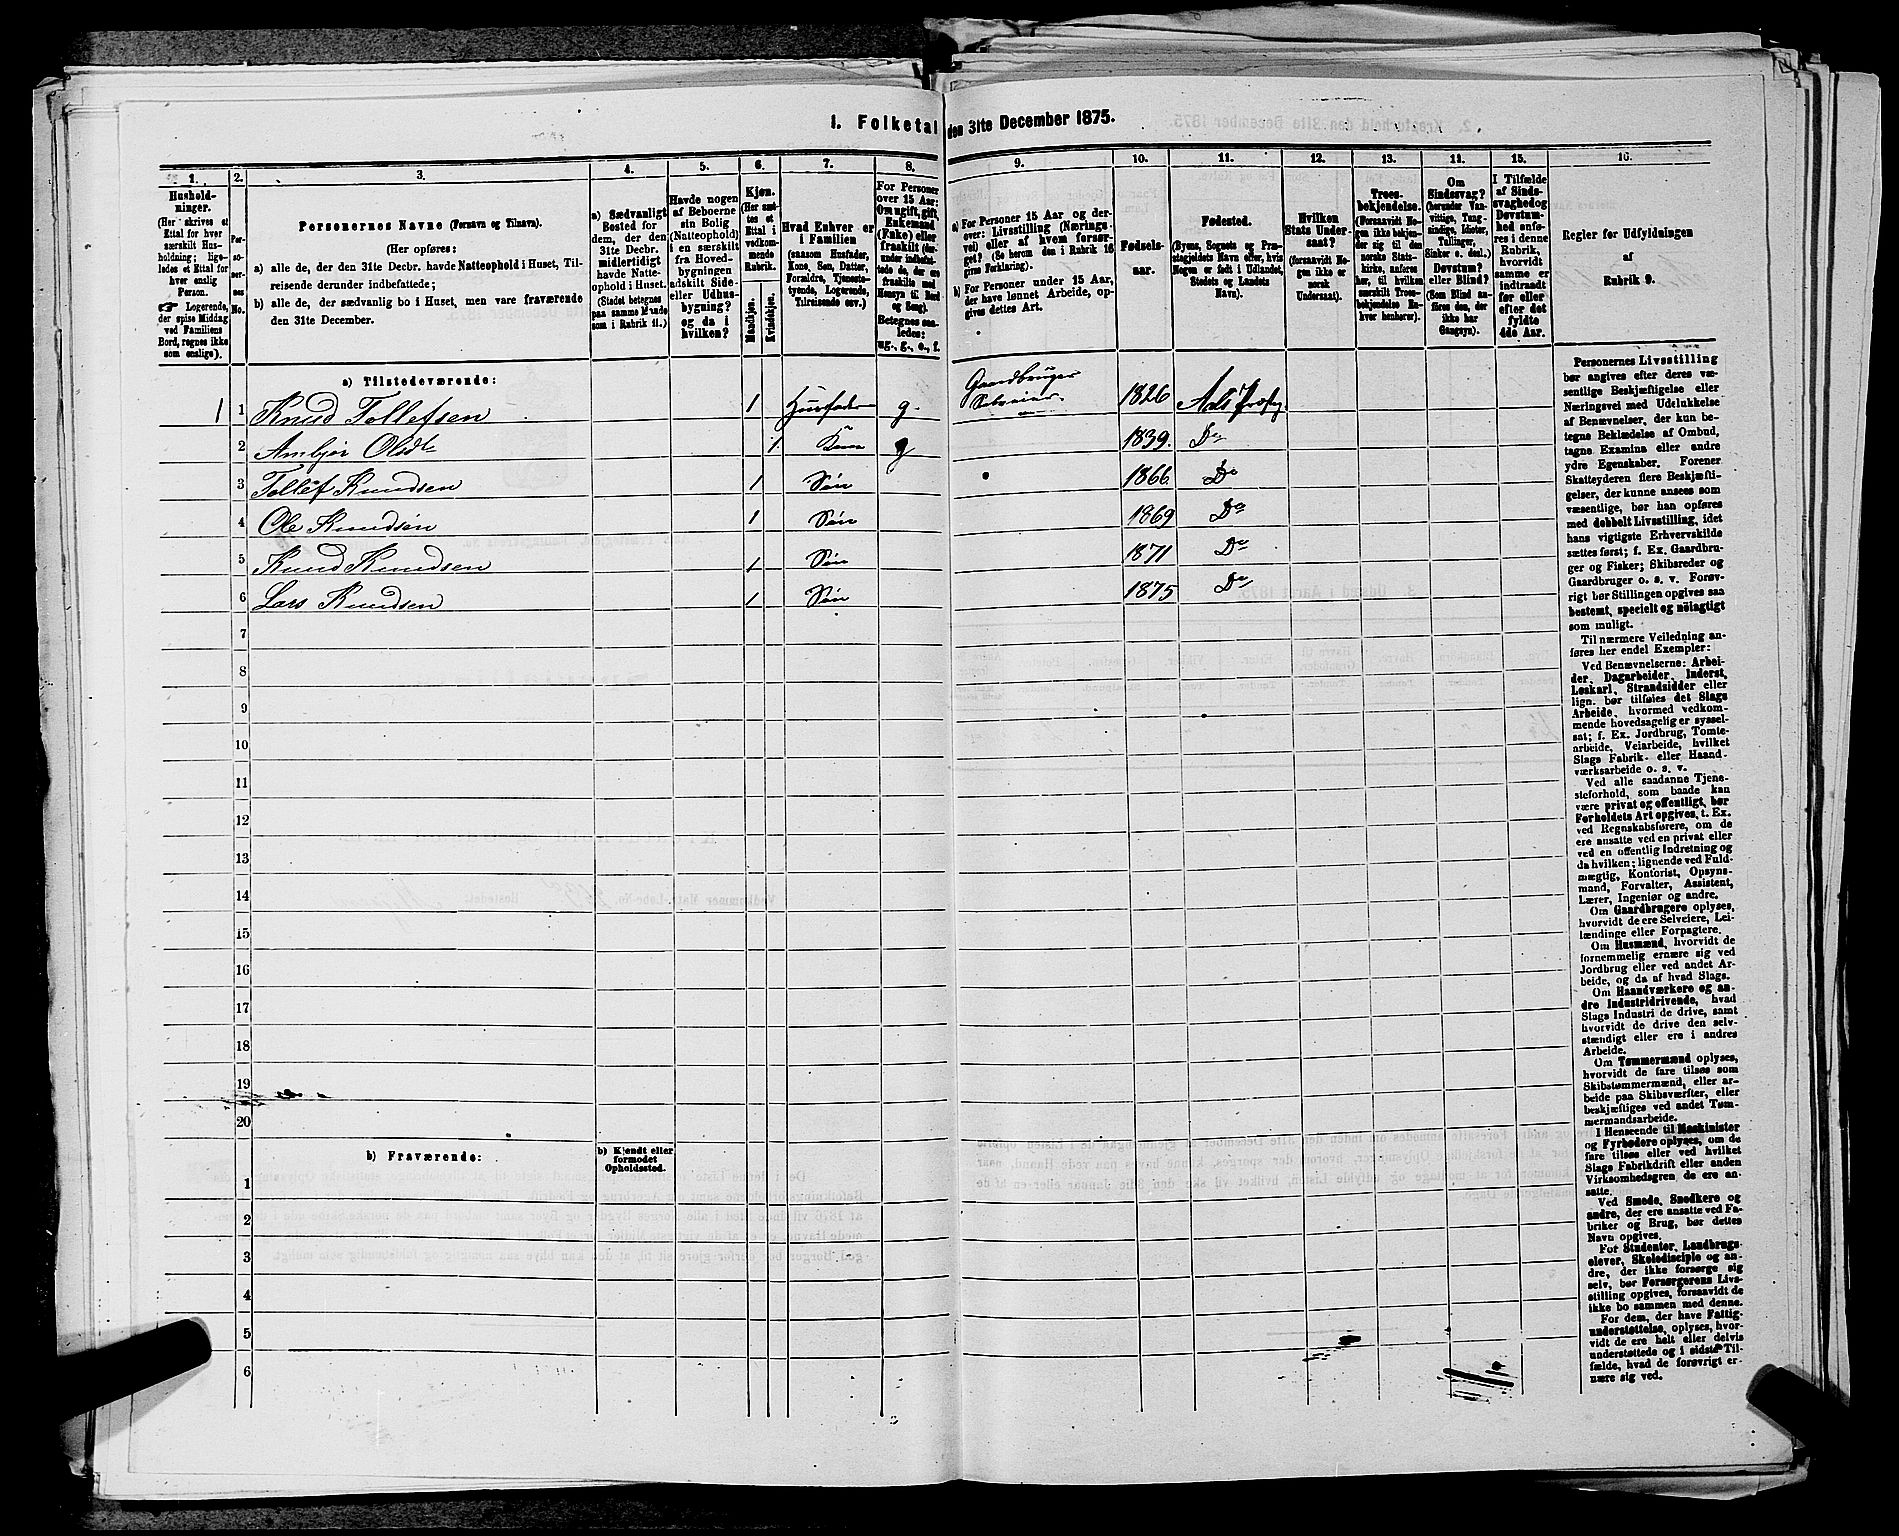 1. Folketal den 31te December 1875.
1. 2. 3. 4. 5. 6. 7. 8. 9. 10. 11. 12. 13. 14. 15. 16.
Hushold-
ninger.
(Her skrives et
Ettal for hver
særskilt Hus-
holdning; lige-
ledes et Ettal for
hver enslig
Person.
☛ Logerende,
der spise Middag
ved Familiens
Bord, regnes ikke
som enslige).
Per-
so-
ner-
nes
No.
Personernes Navne (Fornavn og Tilnavn).
(Her opføres:
a) alle de, der den 31te Decbr. havde Natteophold i Huset, Til-
reisende derunder indbefattede;
b) alle de, der sædvanlig bo i Huset, men vare fraværende
den 31te December.
a) Sædvanligt
Bosted for
dem, der den
31te Decbr.
midlertidigt
havde Natte-
ophold i Huset.
(Stedet betegnes
paa samme Maade
som i Rubrik 11.)
Havde nogen
af Beboerne
sin Bolig
(Natteophold)
i en særskilt
fra Hoved-
bygningen
adskilt Side-
eller Udhus-
bygning?
og da i
hvilken?
Kjøn.
(Her sæt-
tes et
Ettal i
vedkom-
mende
Rubrik.
Mandkjøn.
Kvindekjøn.
Hvad Enhver er
i Familien
(saasom Husfader,
Kone, Søn, Datter,
Forældre, Tjeneste-
tyende, Logerende,
Tilreisende osv.)
For Personer
over 15 Aar:
Om ugift, gift,
Enkemand
(Enke) eller
fraskilt (der-
under indbefat-
tede de, der ere
fraskilte med
Hensyn til Bord
og Seng).
Betegnes saa-
ledes:
ug., g., e., f.
a) For Personer 15 Aar og der-
over: Livsstilling (Nærings-
vei) eller af hvem forsør-
get. (Se herom den i Rubrik 16
givne Forklaring).
b) For Personer under 15 Aar,
der have lønnet Arbeide, op-
gives dettes Art.
Fødsels-
aar.
Fødested.
(Byens, Sognets og Præ-
stegjeldets Navn eller, hvis
Nogen er født i Udlandet,
Stedets og Landets
Navn).
Hvilken
Stats Under-
saat?
(forsaavidt No-
gen ikke er
norsk
Undersaat).
Troes-
bekjendelse.
(Forsaavidt No-
gen ikke bekjen-
der sig til den
norske Stats-
kirke, anføres
her, til hvilken
særskilt Troes-
bekjendelse En-
hver henhører).
Om
Sindssvag?
(herunder Van-
vittige, Tung-
sindige, Idioter,
Tullinger,
Sinker o. desl.)
Døvstum?
eller Blind?
(Som Blind an-
føres den, der
ikke har
Gangsyn).
I Tilfælde
af Sinds-
svaghed og
Døvstum-
hed anfø-
res i denne
Rubrik,
hvorvidt
samme er
indtraadt
før eller
efter det
fyldte
4de Aar.
Regler for Udfyldningen
af
Rubrik 9.
a) Tilstedeværende:
1 1 Knud Tollefsen 1 Husfader g. Gaardbruger Selveier. 1826 Aals Præstg.
2 Ambjør Olsdtr 1 Kone g 1839. Do
3 Tollef Knudsen 1 Søn 1866 Do
4 Ole Knudsen 1 Søn 1869 Do
5 Knud Knudsen 1 Søn 1871 Do
6 Lars Knudsen 1 Søn 1875 Do
7
8
9
10
11
12
13
14
15
16
17
18
19
20
b) Fraværende:
b) Kjendt eller
formodet
Opholdssted.
1
2
3
4
5
6
Personernes Livsstilling
bør angives efter deres væ-
sentlige Beskjæftigelse eller
Næringsvei med Udelukkelse
af Benævnelser, der kun be-
tegne Beklædelse af Ombud,
tagne Examina eller andre
ydre Egenskaber. Forener
Skatteyderen flere Beskjæfti-
gelser, der kunne ansees som
væsentlige, bør han opføres
med dobbelt Livsstilling, idet
hans vigtigste Erhvervskilde
sættes først; f. Ex. Gaardbru-
ger og Fisker; Skibsreder og
Gaardbruger o. s. v. Forøv-
rigt bør Stillingen opgives saa
bestemt, specielt og nøiagtigt
som muligt.
Til nærmere Veiledning an-
føres her endel Exempler:
Ved Benævnelserne: Arbei-
der, Dagarbeider, Inderst,
Løskarl, Strandsidder eller
lign. bør tilføies det Slags
Arbeide, hvormed vedkom-
mende hovedsagelig er syssel-
sat; f. Ex. Jordbrug, Tomte-
arbeide, Veiarbeide, hvilket
Slags Fabrik- eller Haand-
værksarbeide o. s. v.
Ved alle saadanne Tjene-
steforhold, som baade kan
være privat og offentligt, bør
Forholdets Art opgives, t. Ex.
ved Regnskabsførere, om de
ere ansatte ved en privat eller
ved en offentlig Indretning og
da hvilken; lignende ved Fuld-
mægtig, Kontorist, Opsyns-
mand, Forvalter, Assistent,
Lærer, Ingeniør og andre.
Om Gaardbrugere oplyses,
hvorvidt de ere Selveiere, Lei-
lændinge eller Forpagtere.
Om Husmænd, hvorvidt de
fornemmelig ernære sig ved
Jordbrug eller ved andet Ar-
beide, og da af hvad Slags.
Om Haandværkere og an-
dre Industridrivende, hvad
Slags Industri de drive, samt
hvorvidt de drive den selv-
stændigt eller ere i andres
Arbeide.
Om Tømmermænd oplyses,
hvorvidt de fare tilsøs som
Skibstømmermænd, eller ar-
beide paa Skibsværfter, eller
beskjæftiges ved andet Tøm-
mermandsarbeide.
I Henseende til Maskinister
og Fyrbødere oplyses, om de
fare tilsøs eller ved hvilket
Slags Fabrikdrift eller anden
Virksomhedsgren de ere an-
satte.
Ved Smede, Snedkere og
andre, der ere ansatte ved Fa-
briker og Brug, bør dettes
Navn opgives.
For Studenter, Landbrugs-
elever, Skoledisciple og an-
dre, der ikke forsørge sig
selv, bør Forsørgerens Livs-
stilling opgives, forsaavidt de
ikke bo sammen med denne.
For dem, der have Fattig-
understøttelse, oplyses, hvor-
vidt de ere helt eller delvis
understøttede og i sidste Til-
fælde, hvad de forøvrigt er-
nære sig ved.